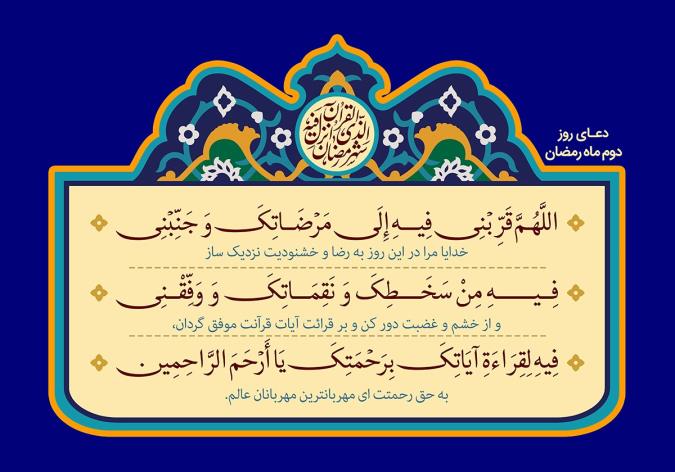 شهر رمضان الذی انزل فیه القرآن
دعـای روز
دوم ماه رمضان
اللَّهُمَّ قَرِّبْنِی فِیـهِ إِلَی مَرْضَـاتِکَ وَ جَنِّبْنِی
خدایا مرا در این روز به رضا و خشنودیت نزدیک ساز
فِـیـهِ مِنْ سَخَـطِکَ وَ نَقِمَـاتِکَ وَ وَفِّقْـنِی
و از خشم و غضبت دور کن و بر قرائت آیات قرآنت موفق گردان،
فِیهِ لِقِرَاءَةِ آیَاتِکَ بِرَحْمَتِکَ یَا أَرْحَمَ الرَّاحِمِین.
به حق رحمتت ای مهربانترین مهربانان عالم.